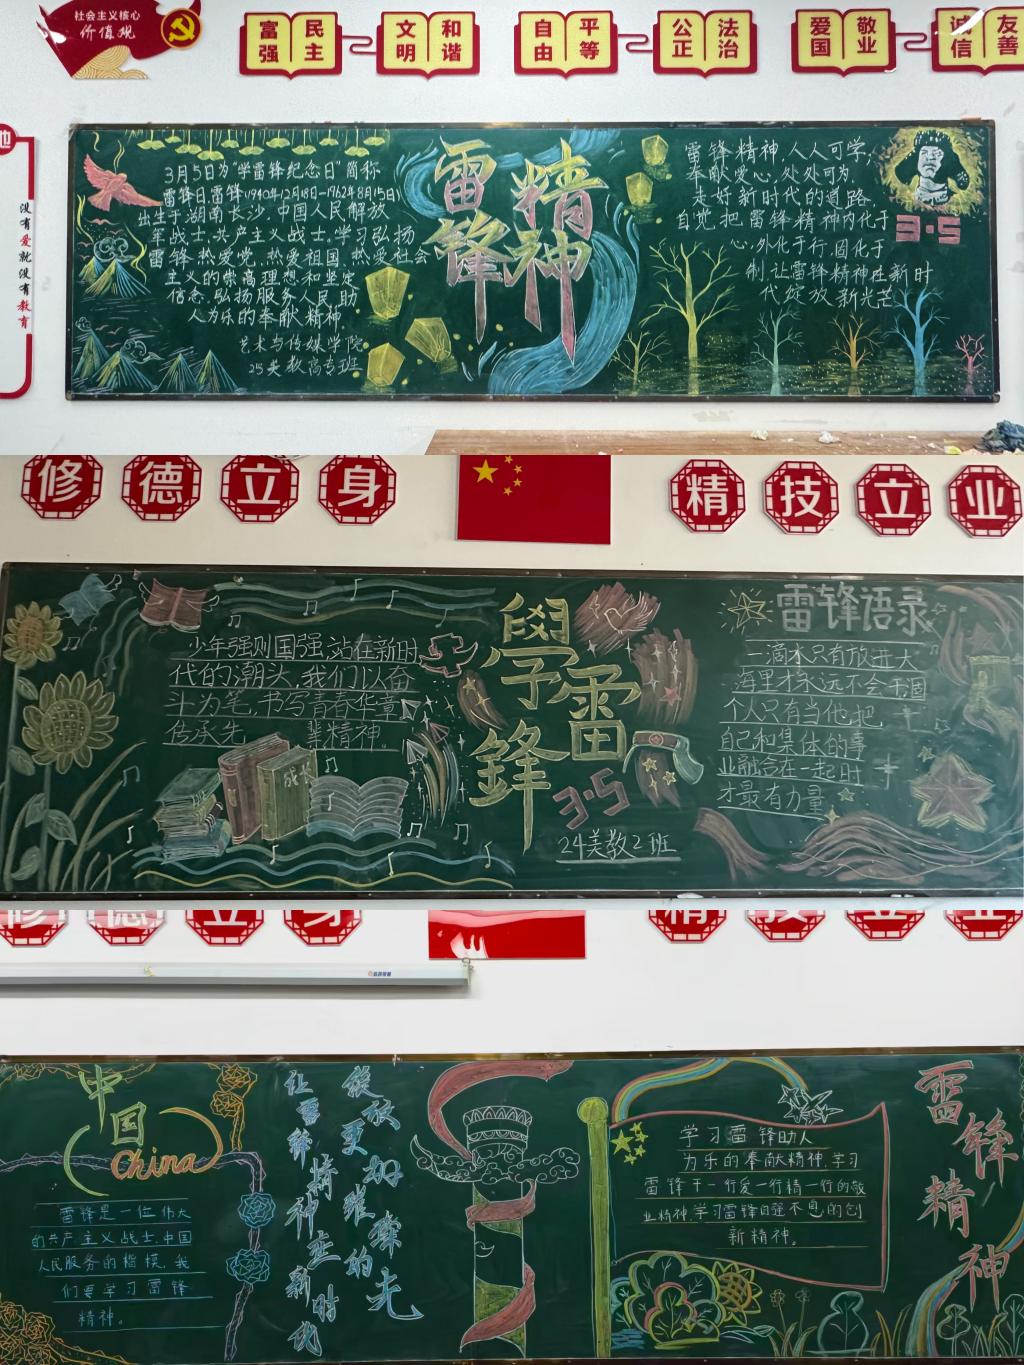 社会主义核心
价值观
富强 民主 文明 和谐 自由 平等 公正 法治 爱国 敬业 诚信 友善
没有爱就没有教育
3月5日为“学雷锋纪念日”简称
雷锋日,雷锋(1940年12月18日-1962年8月15日)
出生于湖南长沙,中国人民解放
军战士,共产主义战士。学习弘扬
雷锋热爱党、热爱祖国、热爱社会
主义的崇高理想和坚定
信念,弘扬服务人民、助
人为乐的奉献精神
艺术与传媒学院
25美教高专班
雷锋
精神
雷锋精神,人人可学,
奉献爱心,处处可为,
走好新时代的道路,
自觉把雷锋精神内化于
心,外化于行,固化于
制,让雷锋精神在新时
代绽放新光芒
3·5
修德立身
精技立业
少年强则国强,站在新时
代的潮头,我们以奋
斗为笔,书写青春华章
传承先 辈精神。
成长
學雷鋒
3·5
24美教2班
雷锋语录
一滴水只有放进大
海里才永远不会干涸
个人只有当他把
自己和集体的事
业融合在一起时
才最有力量
修德立身
精技立业
中国
China
雷锋是一位伟大
的共产主义战士,中国
人民服务的楷模,我
们要学习雷锋
精神。
让雷锋精神在新时代
绽放更加璀璨的光
学习雷锋助人
为乐的奉献精神,学习
雷锋干一行爱一行精一行的敬
业精神,学习雷锋自强不息的创
新精神。
雷锋精神